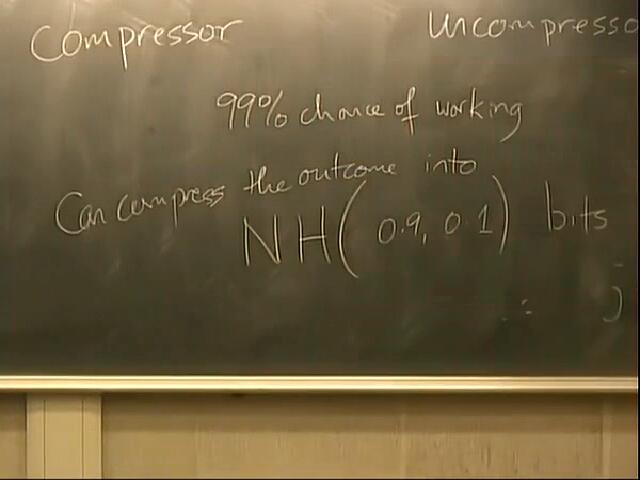 Compressor Uncompresso
99% chance of working
Can compress the outcome into
NH(0.9, 0.1) bits